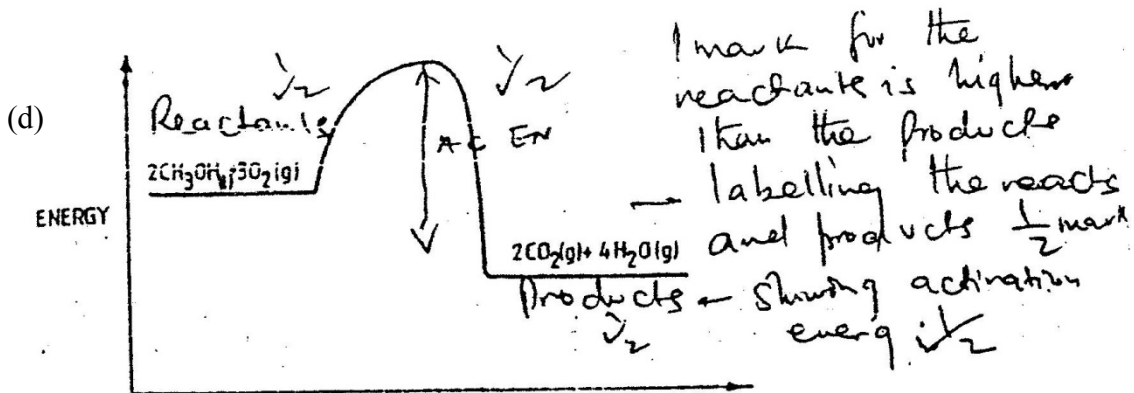 (d)
ENERGY
Reactants ½
½
2CH₃OH(l)+3O₂(g)
AC EN
2CO₂(g)+ 4H₂O(g)
Products
½
1 mark for the
reactants is higher
than the products
— labelling the reacts
and products ½ mark
— showing activation
energ ½